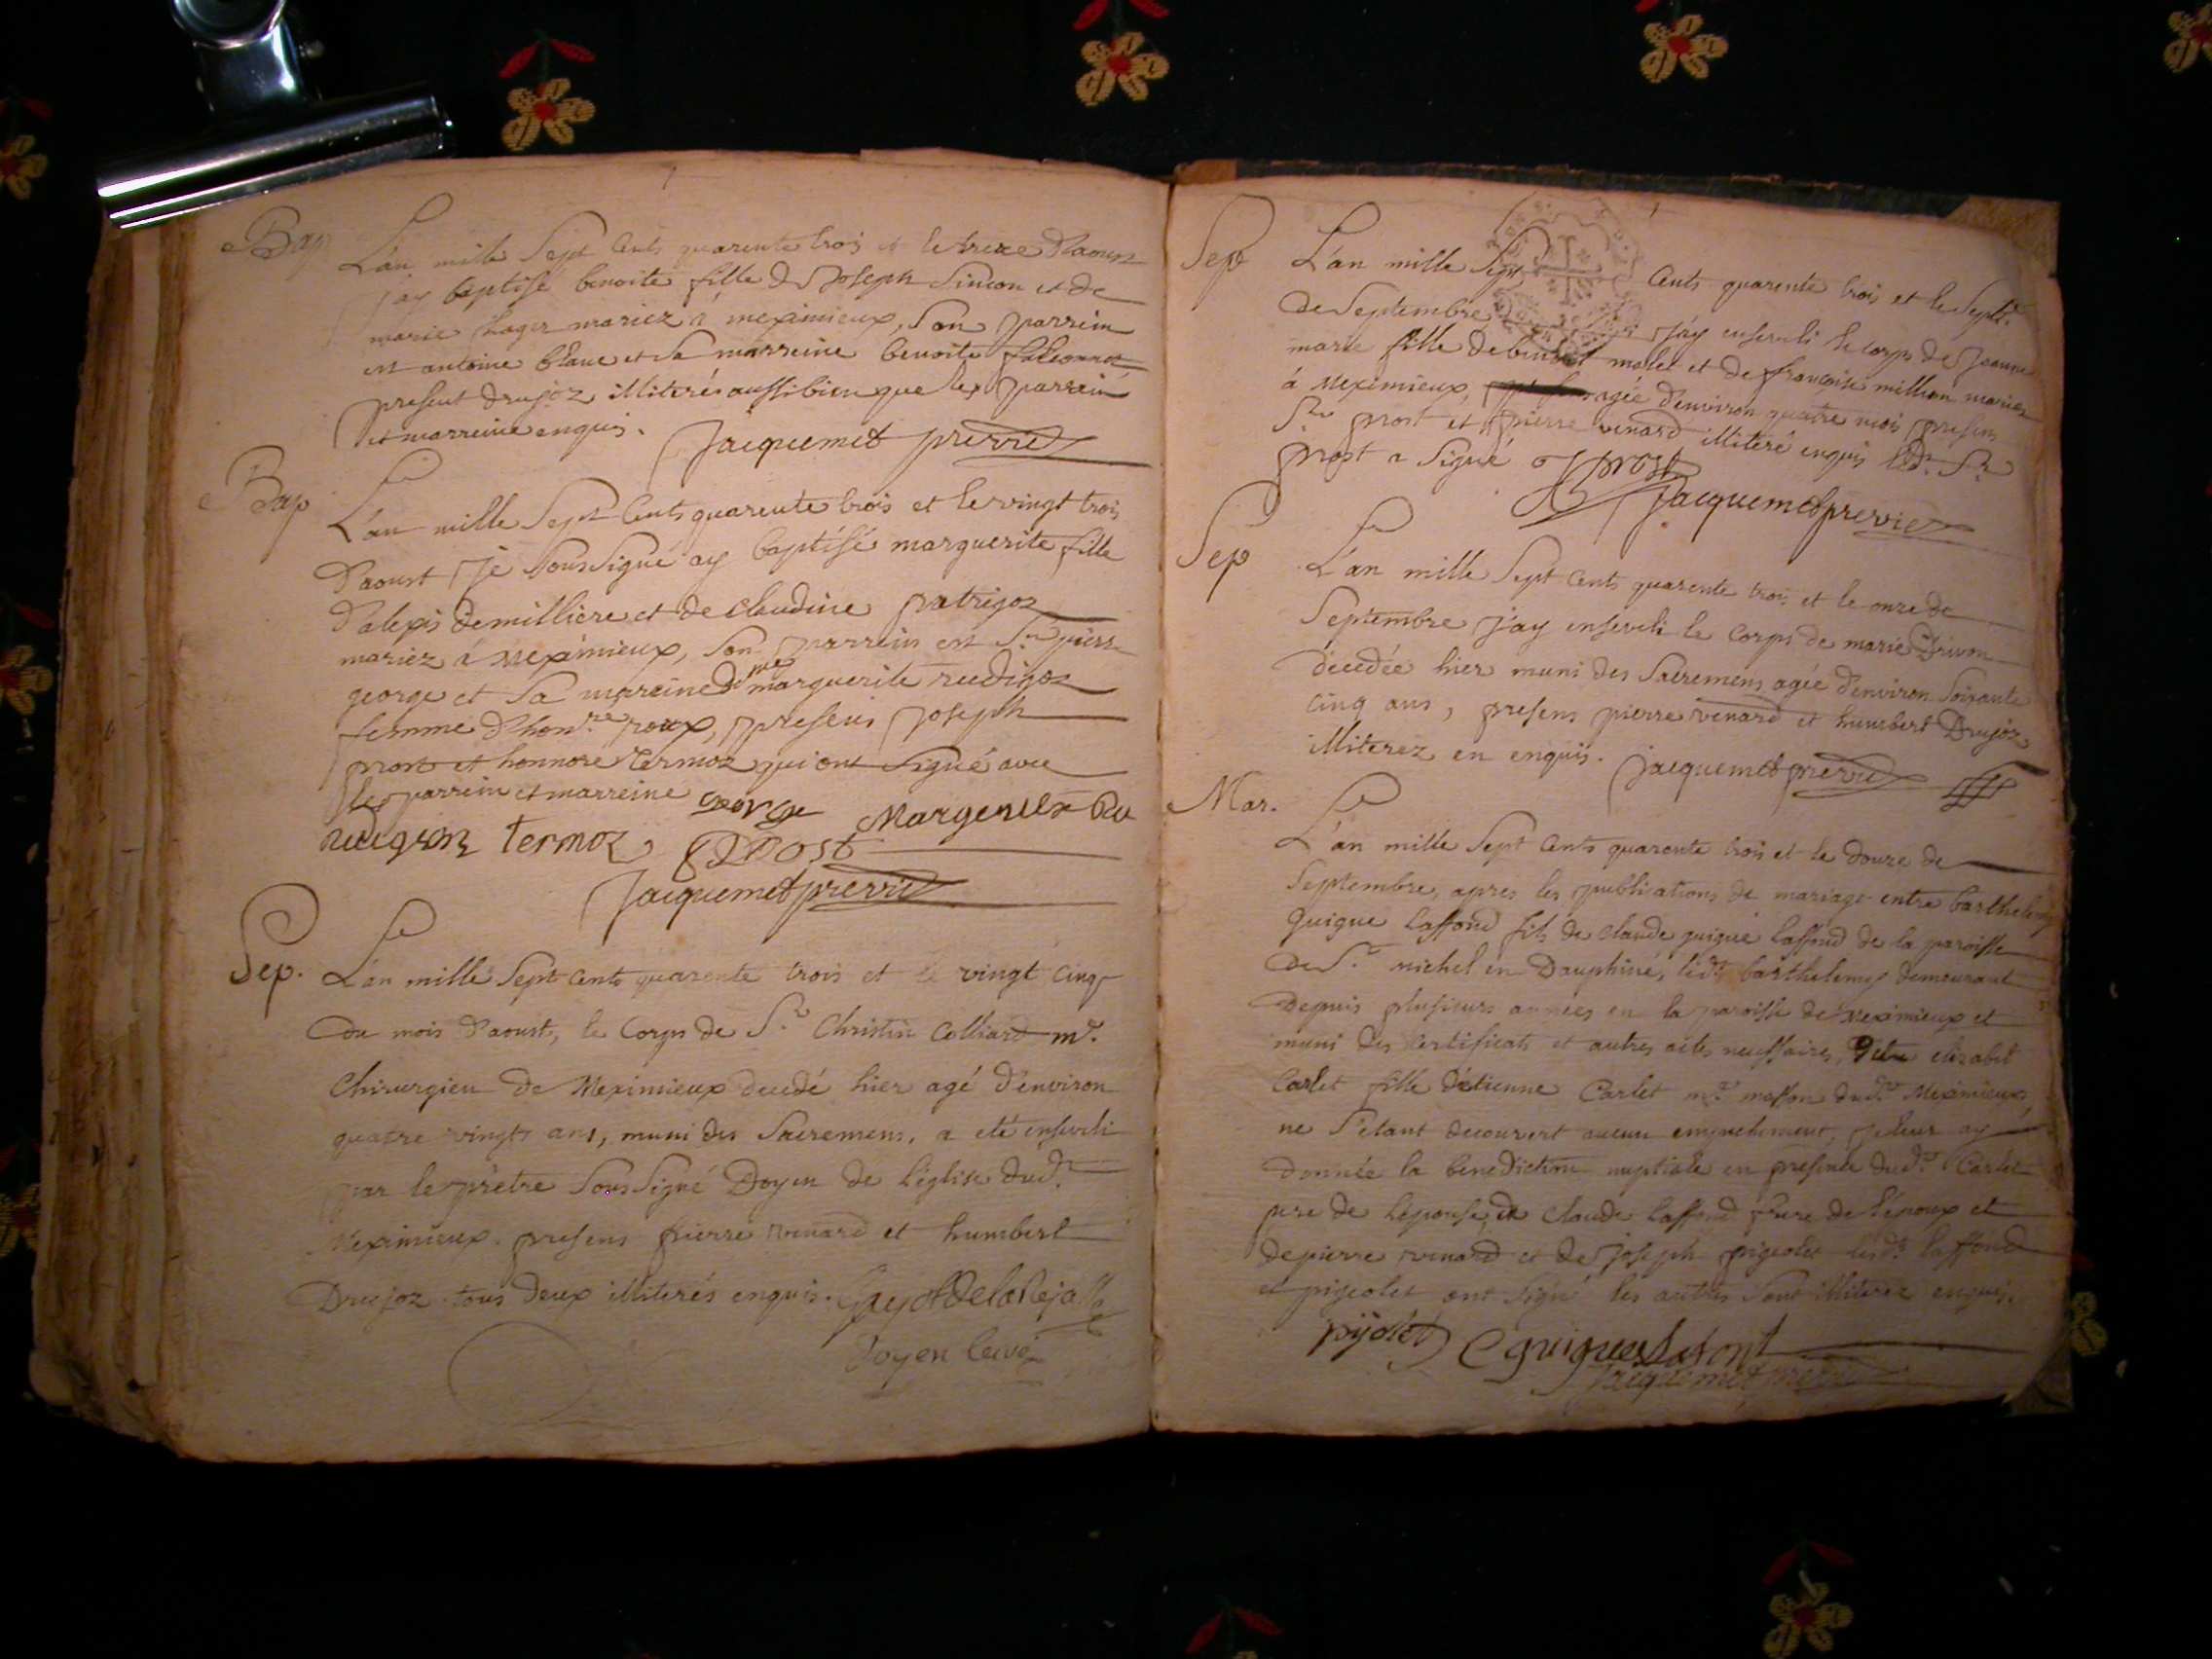 Bap
L'an mille Sept Cents quarente trois et le treze d'aoust
j'ay baptisé benoite fille de Joseph Simeon et de
marie mariez à meximieux, son parrein
est antoine blanc et sa marreine benoite
present drujoz illiterés aussi bien que les parrein
et marreine enquis. Jacquemet prevvie
Bap
L'an mille Sept Cents quarente trois et le vingt trois
d'aoust Je soussigné ay baptisé marguerite fille
d'alexis demilliere et de claudine patrigoz
mariez à Meximieux, son parrein est Sr. pierre
george et sa marreine dme marguerite rudigoz
femme d'honre roux, presens joseph
prost et honnoré termoz qui ont signé avec
les parrein et marreine george Margerutte Ru
rudigoz termoz J Prost
Jacquemet prevvie
Sep.
L'an mille Sept Cents quarente trois et le vingt cinq
du mois d'aoust, le Corps de Sr. Christin Colliard mr.
Chirurgien de Meximieux decedé hier agé d'environ
quatre vingts ans, muni des Sacremens, a eté enseveli
par le prêtre soussigné Doyen de l'églize dudt.
Meximieux. presens pierre venard et humbert
Drujoz tous deux illiterés enquis. Guyot
Doyen Curé
Sep
L'an mille Sept Cents quarente trois et le Sept
de Septembre j'ay enseveli le corps de Jeanne
marie fille de benoit molet et de francoise million mariez
à Meximieux, agée d'environ quatre mois presens
Sr. prost et pierre venard illiteré enquis ledt. Sr.
prost a signé J prost
Jacquemet prevvie
Sep
L'an mille Sept Cents quarente trois et le onze de
Septembre j'ay enseveli le Corps de marie
décédée hier muni des Sacremens agée d'environ Soixante
cinq ans, presens pierre venard et humbert Drujoz
illiterez en enquis. Jacquemet prevvie
Mar.
L'an mille Sept Cents quarente trois et le douze de
Septembre, apres les publications de mariage entre barthelemy
Guigue Laffond fils de Claude guigue laffond de la paroisse
de St. Michel en Dauphiné, ledt. barthelemy demeurant
depuis plusieurs années en la paroisse de Meximieux et
muni des certificats et autres actes necessaires, et elizabet
Carlet fille d'étienne Carlet mr. masson dudt. Meximieux,
ne s'étant decouvert aucun empechement, je leur ay
donnée la benediction nuptiale en presence dudt. Carlet
pere de l'epouse, et claude laffond frere de l'époux et
de pierre venard et de joseph pigeolet lesdts. laffond
et pigeolet ont signé les autres sont illiterez enquis.
pijolet C guigue Lafont
Jacquemet prevvie